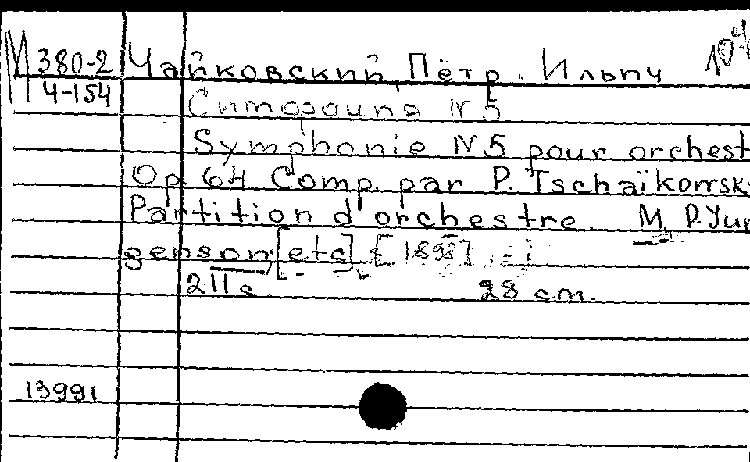 М 380-2 Чайковский, Пётр. Ильич 104
4-154 Симфония N 5
Symphonie N 5 pour orchest
Op 64 Comp. par P. Tschaïkowsk
Partition d'orchestre. M. P. Yur
genson, [etc] [1898]
211 s 28 cm.
13991